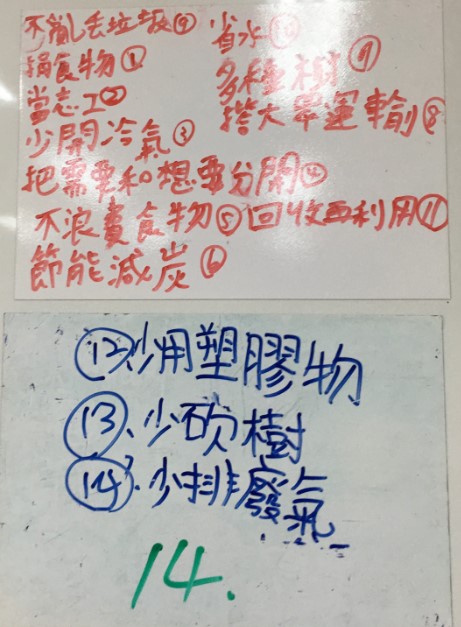 不亂丟垃圾⑨ 省水⑩
捐食物① 多種樹⑦
當志工②
少開冷氣③ 搭大眾運輸⑧
把需要和想要分開④
不浪費食物⑤ 回收再利用⑪
節能減炭⑥
⑫少用塑膠物
⑬、少砍樹
⑭、少排廢氣
14.